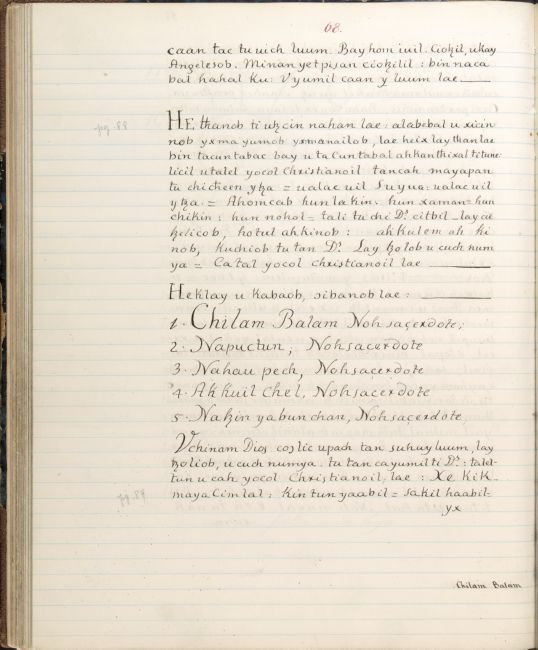 68.
caan tac tu uich luum. Bay hom iuil. Cioꜩil, u kay
Angelesob. Minan yetpisan ciolilil : bin naca
bal hahal Ku: V yumil caan y luum lae
HE thanob ti uꜩcin nahan lae: alabebal u xicin
nob yxma yumob yxmanailob, lae heix lay than lae
bin tacuntabac bay u ta Cuntabal ahkanthixal ti tune
licil u talel yocol Christianoil tancah mayapan
tu chicheen yꜩa = ualac uil Suyua: ualac uil
yꜩa. = Ahomcab hun lakin: hun xaman = hun
chikin: hun nohol = tali tu chi Ds. citbil - lay ca
ꜩelicob, hotul ahkinob : ahkulem ah ki
nob, Kuchiob tu tan Ds. Lay ꜩolob u cuch num
ya = Ca tal yocol christianoil lae
Heklay u Kabaob, sibanob lae:
1. Chilam Balam Nohsaçerdote;
2. Napuctun, Nohsacerdote
3. Nahau pech, Nohsaçerdote
4. Ah Kuil Chel, Nohsacerdote
5. Naꜩin yabun chan, Nohsaçerdote,
Vchinam Dios coylic upach tan suhuy luum, lay
ꜩoliob, u cuch numya. tu tan cayumil ti Ds.: talel
tun u cah yocol Christianoil, lae : Xe Kik.
maya Cimlal: Kin tun yaabil = sakil haabil-
yx
Chilam Balam